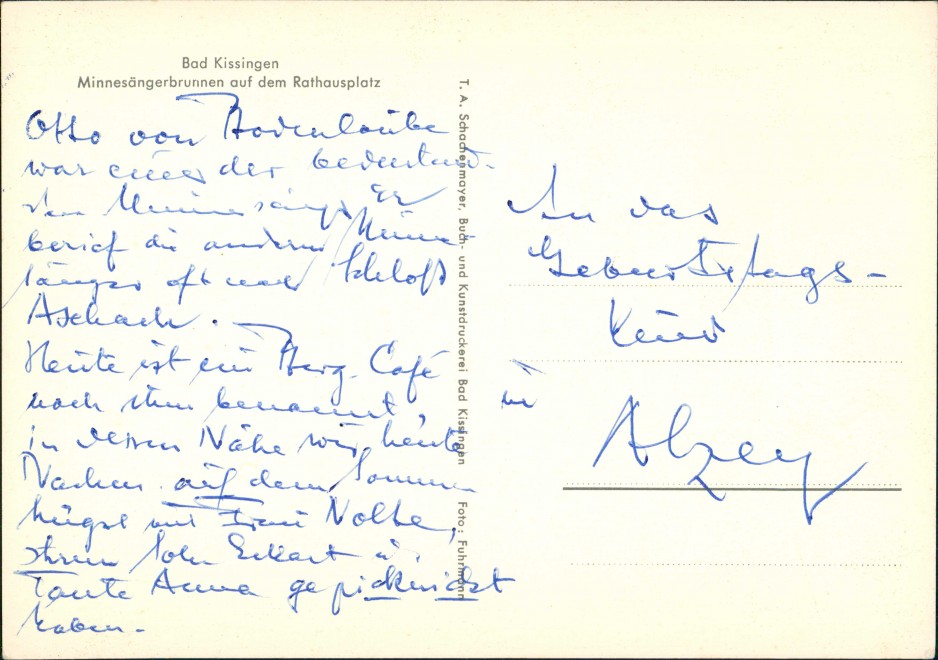 Bad Kissingen
Minnesängerbrunnen auf dem Rathausplatz
Otto von Bodenlaube
war einer der bedeutend-
sten Minnesänger. Er
berief die anderen Minne
sänger oft nach Schloß
Aschach.
Heute ist ein Berg-Café
nach ihm benannt,
in dessen Nähe wir heute
Nachm. auf dem Sommer
hügel mit Frau Nolte,
ihrem Sohn Eckart u.
Tante Anna gepicknickt
haben.-
T. A. Schachenmayer, Buch- und Kunstdruckerei Bad Kissingen Foto: Fuhrmann
An das
Geburtstags-
Kind
in
Alzey